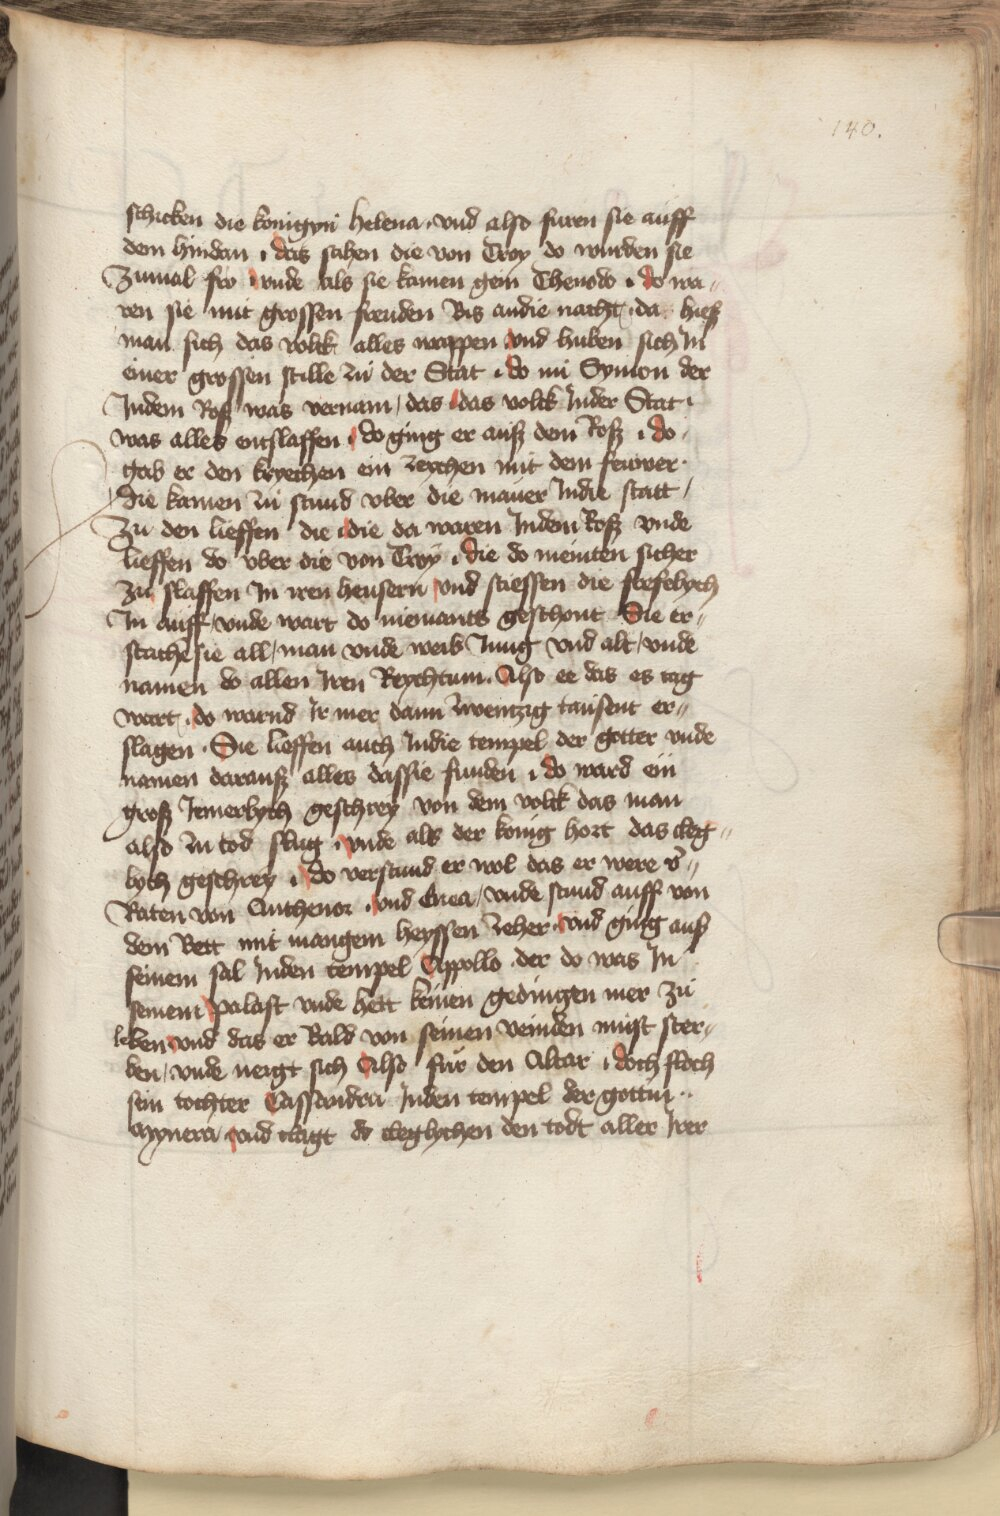 140.
schicken die konigyn helena · vnd also furen sie auff
dem hindan · das sahen die von Troy do wurden sie
Zumal fro vnde als sie kamen gein Thenodo · do wa〃
ren sie mit grossen freuden Bis andie nacht · da hieß
man sich das volck alles wappen vnd huben sich In
einer grossen stille zu der Stat · do nü Symon der
Indem Roß was vernam / das das volck Inder Stat ·
was alles entslaffen · do ging er auß dem Roß · do
gab er den kryechen ein zeychen mit dem feuwer ·
die kamen zu stund vber die mauer Indie statt /
Zu den lieffen die die da waren Indem Roß vnde
lieffen do vber die von Troy · die do meinten sicher
zu slaffen In iren heusern vnd stiessen die frefelych
In auff / vnde wart do niemants geschont Sie er〃
stache sie all / man vnde weib Jung vnd alt / vnde
namen do allen Iren Reychtum · Also ee das es tag
wart · do warnd Ir mer dann zwentzig tausent er〃
slagen · Sie lieffen auch Indie tempel der gotter vnde
namen darauß alles das sie funden · do ward ein
groß Iemerlych geschrey von dem volck das man
also zu tod slug · vnde als der konig hort das cleg〃
lych geschrey · do verstund er wol das er were v̾〃
Raten von Anthenor · vnd Enea / vnde stund auff von
dem Bett mit mangem heyssen zeher · vnd ging auß
seinem sal Inden tempel Appollo der do was In
seinem palast vnde hett keinen gedingen mer zu
leben vnd das er Bald von seinen veinden must ster〃
ben / vnde neigt sich Also für den Altar · doch floch
sein tochter Cassandra Inden tempel der gottin ·
Mynera vnd clagt do cleglychen den todt aller Irer